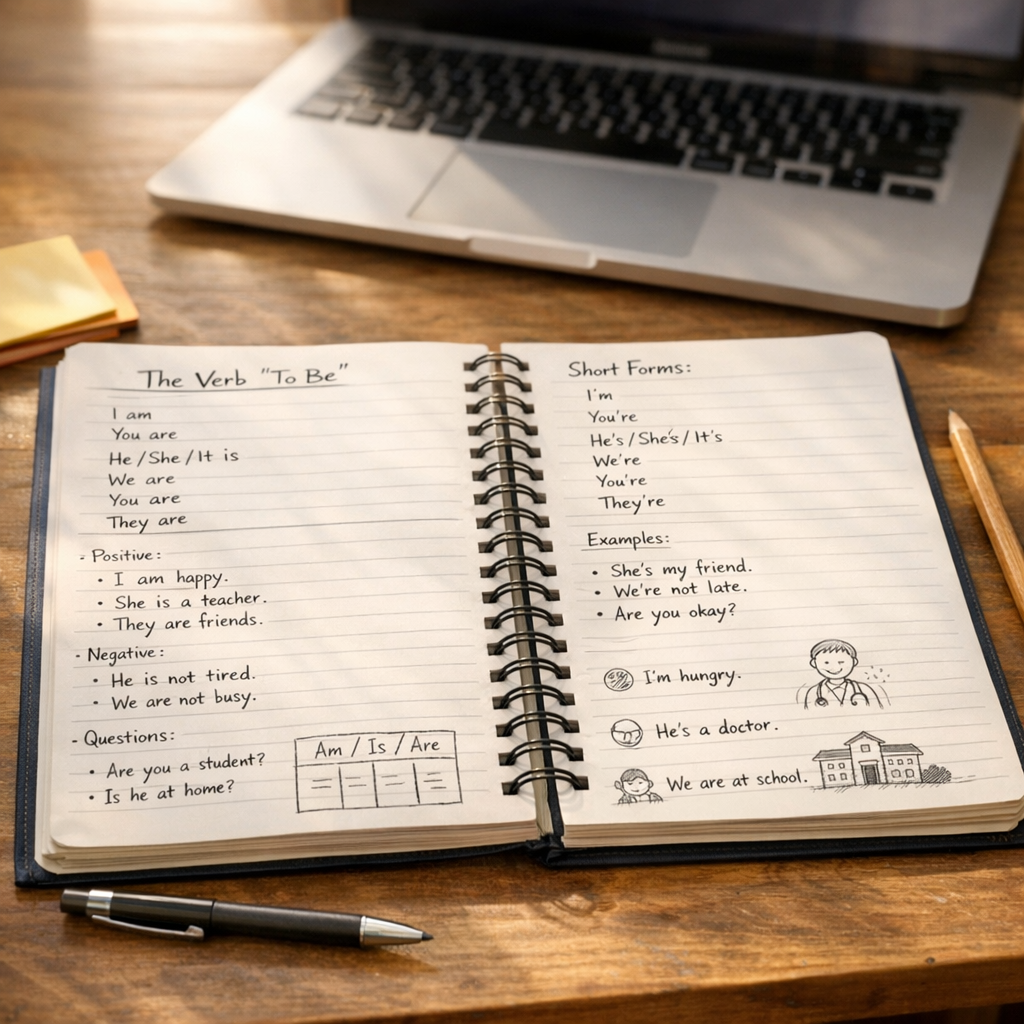 The Verb "To Be"
I am
You are
He / She / It is
We are
You are
They are
- Positive:
• I am happy.
• She is a teacher.
• They are friends.
- Negative:
• He is not tired.
• We are not busy.
- Questions:
• Are you a student?
• Is he at home?
Am / Is / Are
Short Forms:
I'm
You're
He's / She's / It's
We're
You're
They're
Examples:
• She's my friend.
• We're not late.
• Are you okay?
I'm hungry.
He's a doctor.
We are at school.